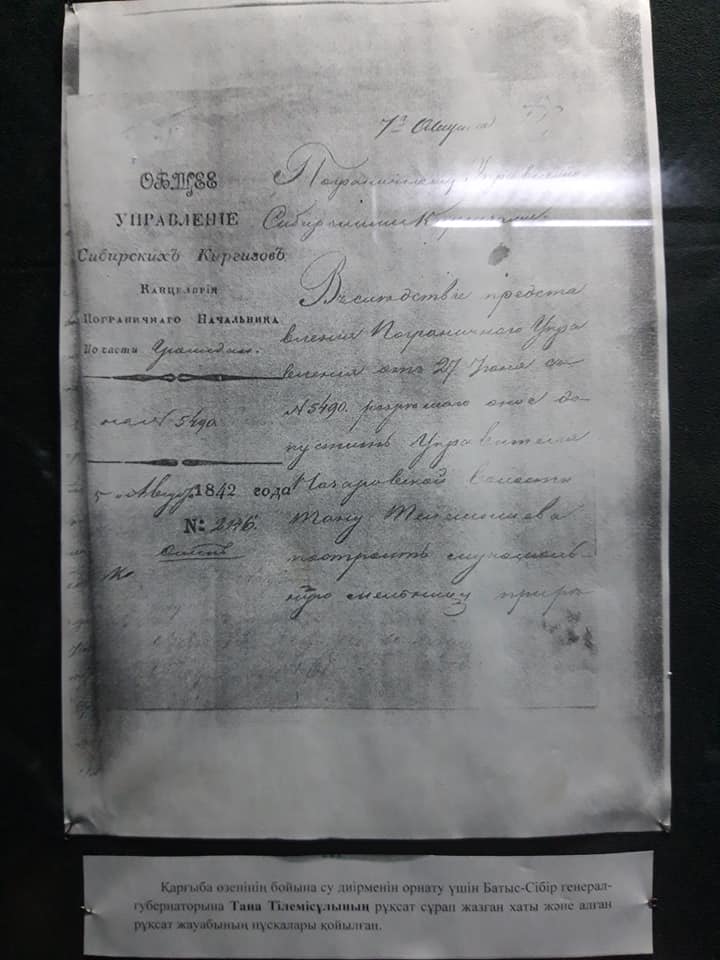 7го Августа
ОБЩЕЕ
УПРАВЛЕНІЕ
Сибирскихъ Кыргизовъ
Канцелярія
Пограничнаго Начальника
По части Граждан.
на № 5490
5 Августа 1842 года
№ 2116.
Пограничному Управленію
Сибирскими Киргизами
Въ слѣдствіе предста
вленія Пограничного Упра
вленія отъ 27 Іюня за
№ 5490. разрѣшаю оное до
пустить Управителя
волости
Тану Тейлемишева
построить
мельницу при рѣ
Қарғыба өзенінің бойына су диірменін орнату үшін Батыс-Сібір генерал-
губернаторына Тана Тілемісұлының рұқсат сұрап жазған хаты және алған
рұқсат жауабының нұсқалары қойылған.